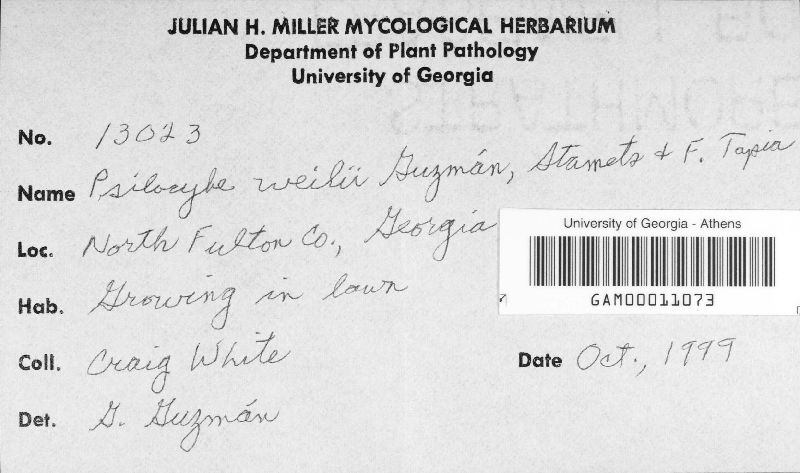 JULIAN H. MILLER MYCOLOGICAL HERBARIUM
Department of Plant Pathology
University of Georgia
No. 13023
Name Psilocybe weilii Guzmán, Stamets & F. Tapia
Loc. North Fulton Co., Georgia
University of Georgia - Athens
GAM00011073
Hab. Growing in lawn
Coll. Craig White
Date Oct., 1999
Det. G. Guzmán